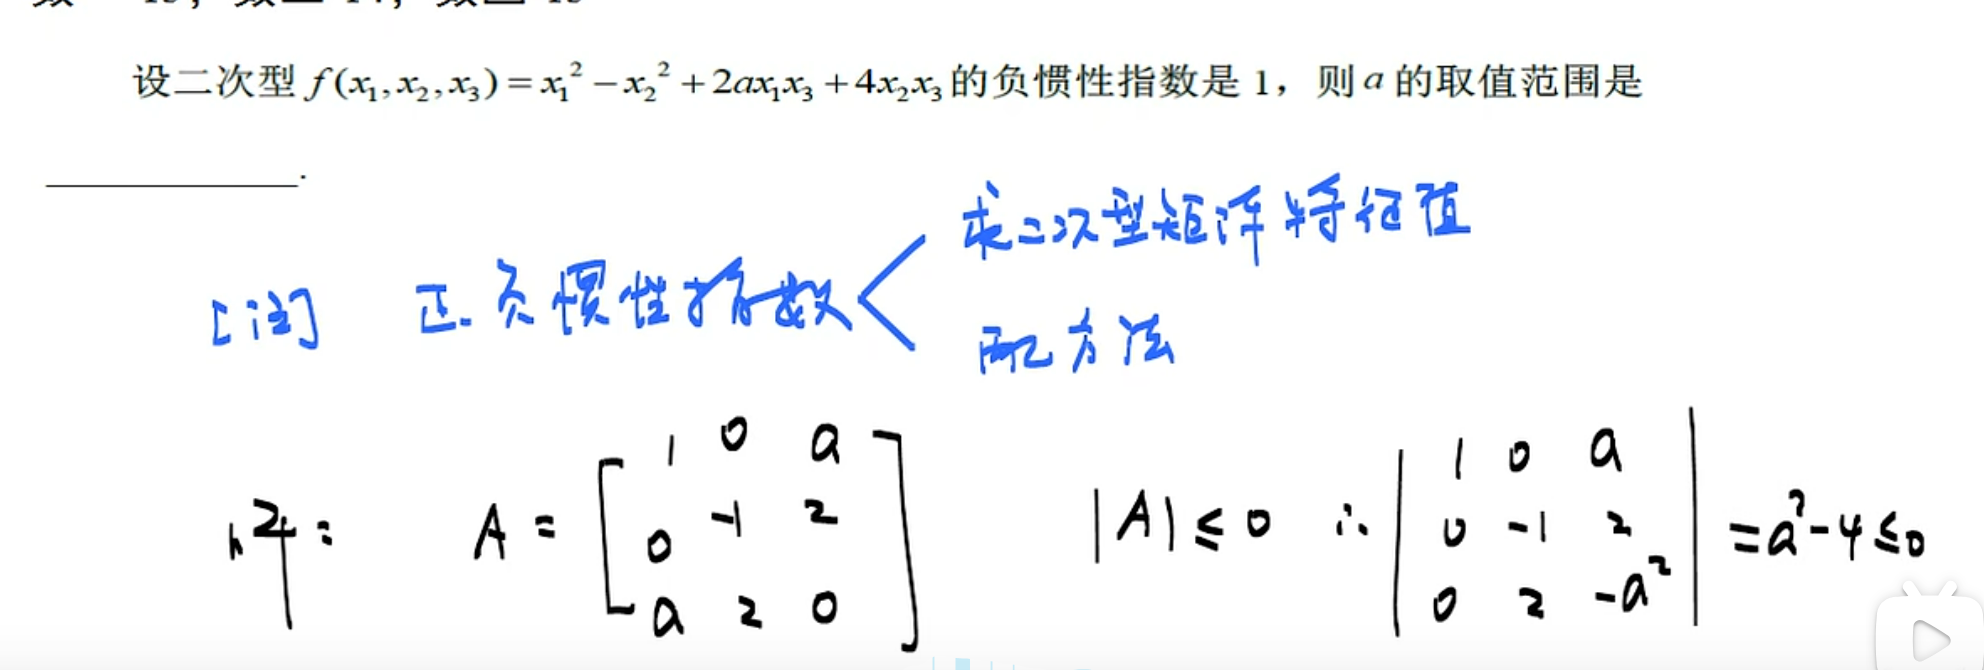 设二次型 f(x₁,x₂,x₃)=x₁²−x₂²+2ax₁x₃+4x₂x₃的负惯性指数是 1，则 a 的取值范围是
.
求二次型矩阵特征值
[注] 正.负惯性指数
配方法
A = [1 0 a
0 -1 2
a 2 0]
|A| ≤ 0 ∴ |1 0 a
0 -1 2
0 2 -a²| = a²-4≤0